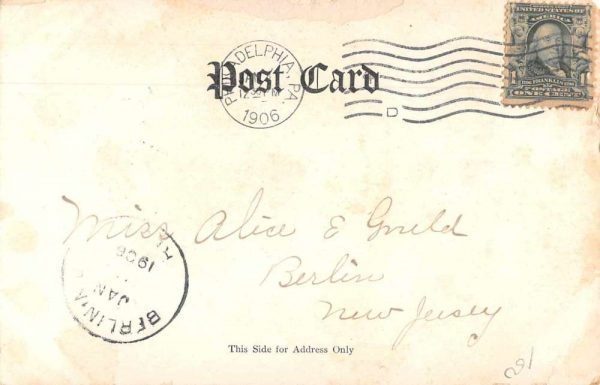 UNITED STATES OF
AMERICA
FRANKLIN
POSTAGE
1 ONE CENT 1
Post Card
PHILADELPHIA, PA.
1906
D
Miss Alice E Gould
Berlin
New Jersey
BERLIN
JAN
1906
This Side for Address Only